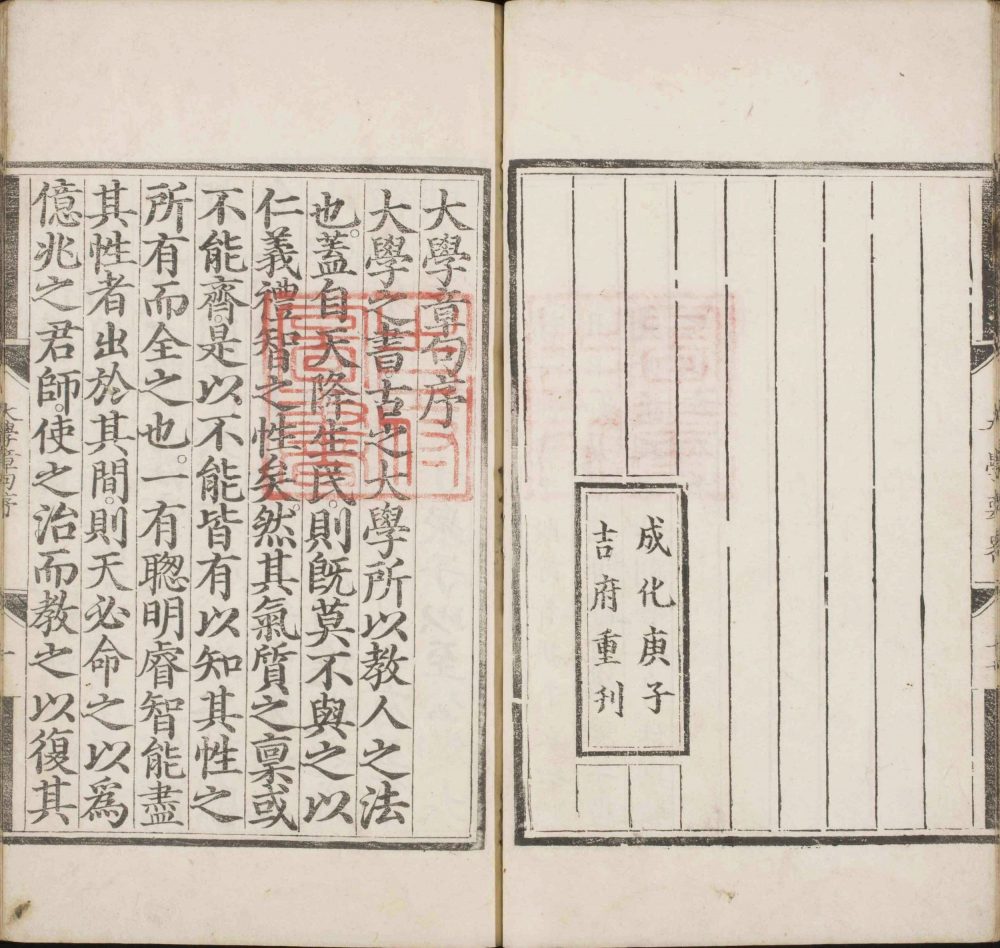 成化庚子
吉府重刊
大學章句序
大學之書古之大學所以教人之法
也。蓋自天降生民。則旣莫不與之以
仁義禮智之性矣。然其氣質之稟或
不能齊。是以不能皆有以知其性之
所有而全之也。一有聰明睿智能盡
其性者出於其間。則天必命之以爲
億兆之君師。使之治而教之以復其
大學章句序